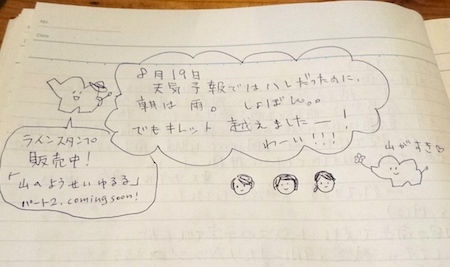 No.
Date
8月19日
天気予報ではハレだったのに、
朝は雨。しょぼん。。
でもキレット越えましたー!
わーい!!!
山がすき
ラインスタンプ
販売中!
「山のようせいゆるる」
パート2. coming soon!